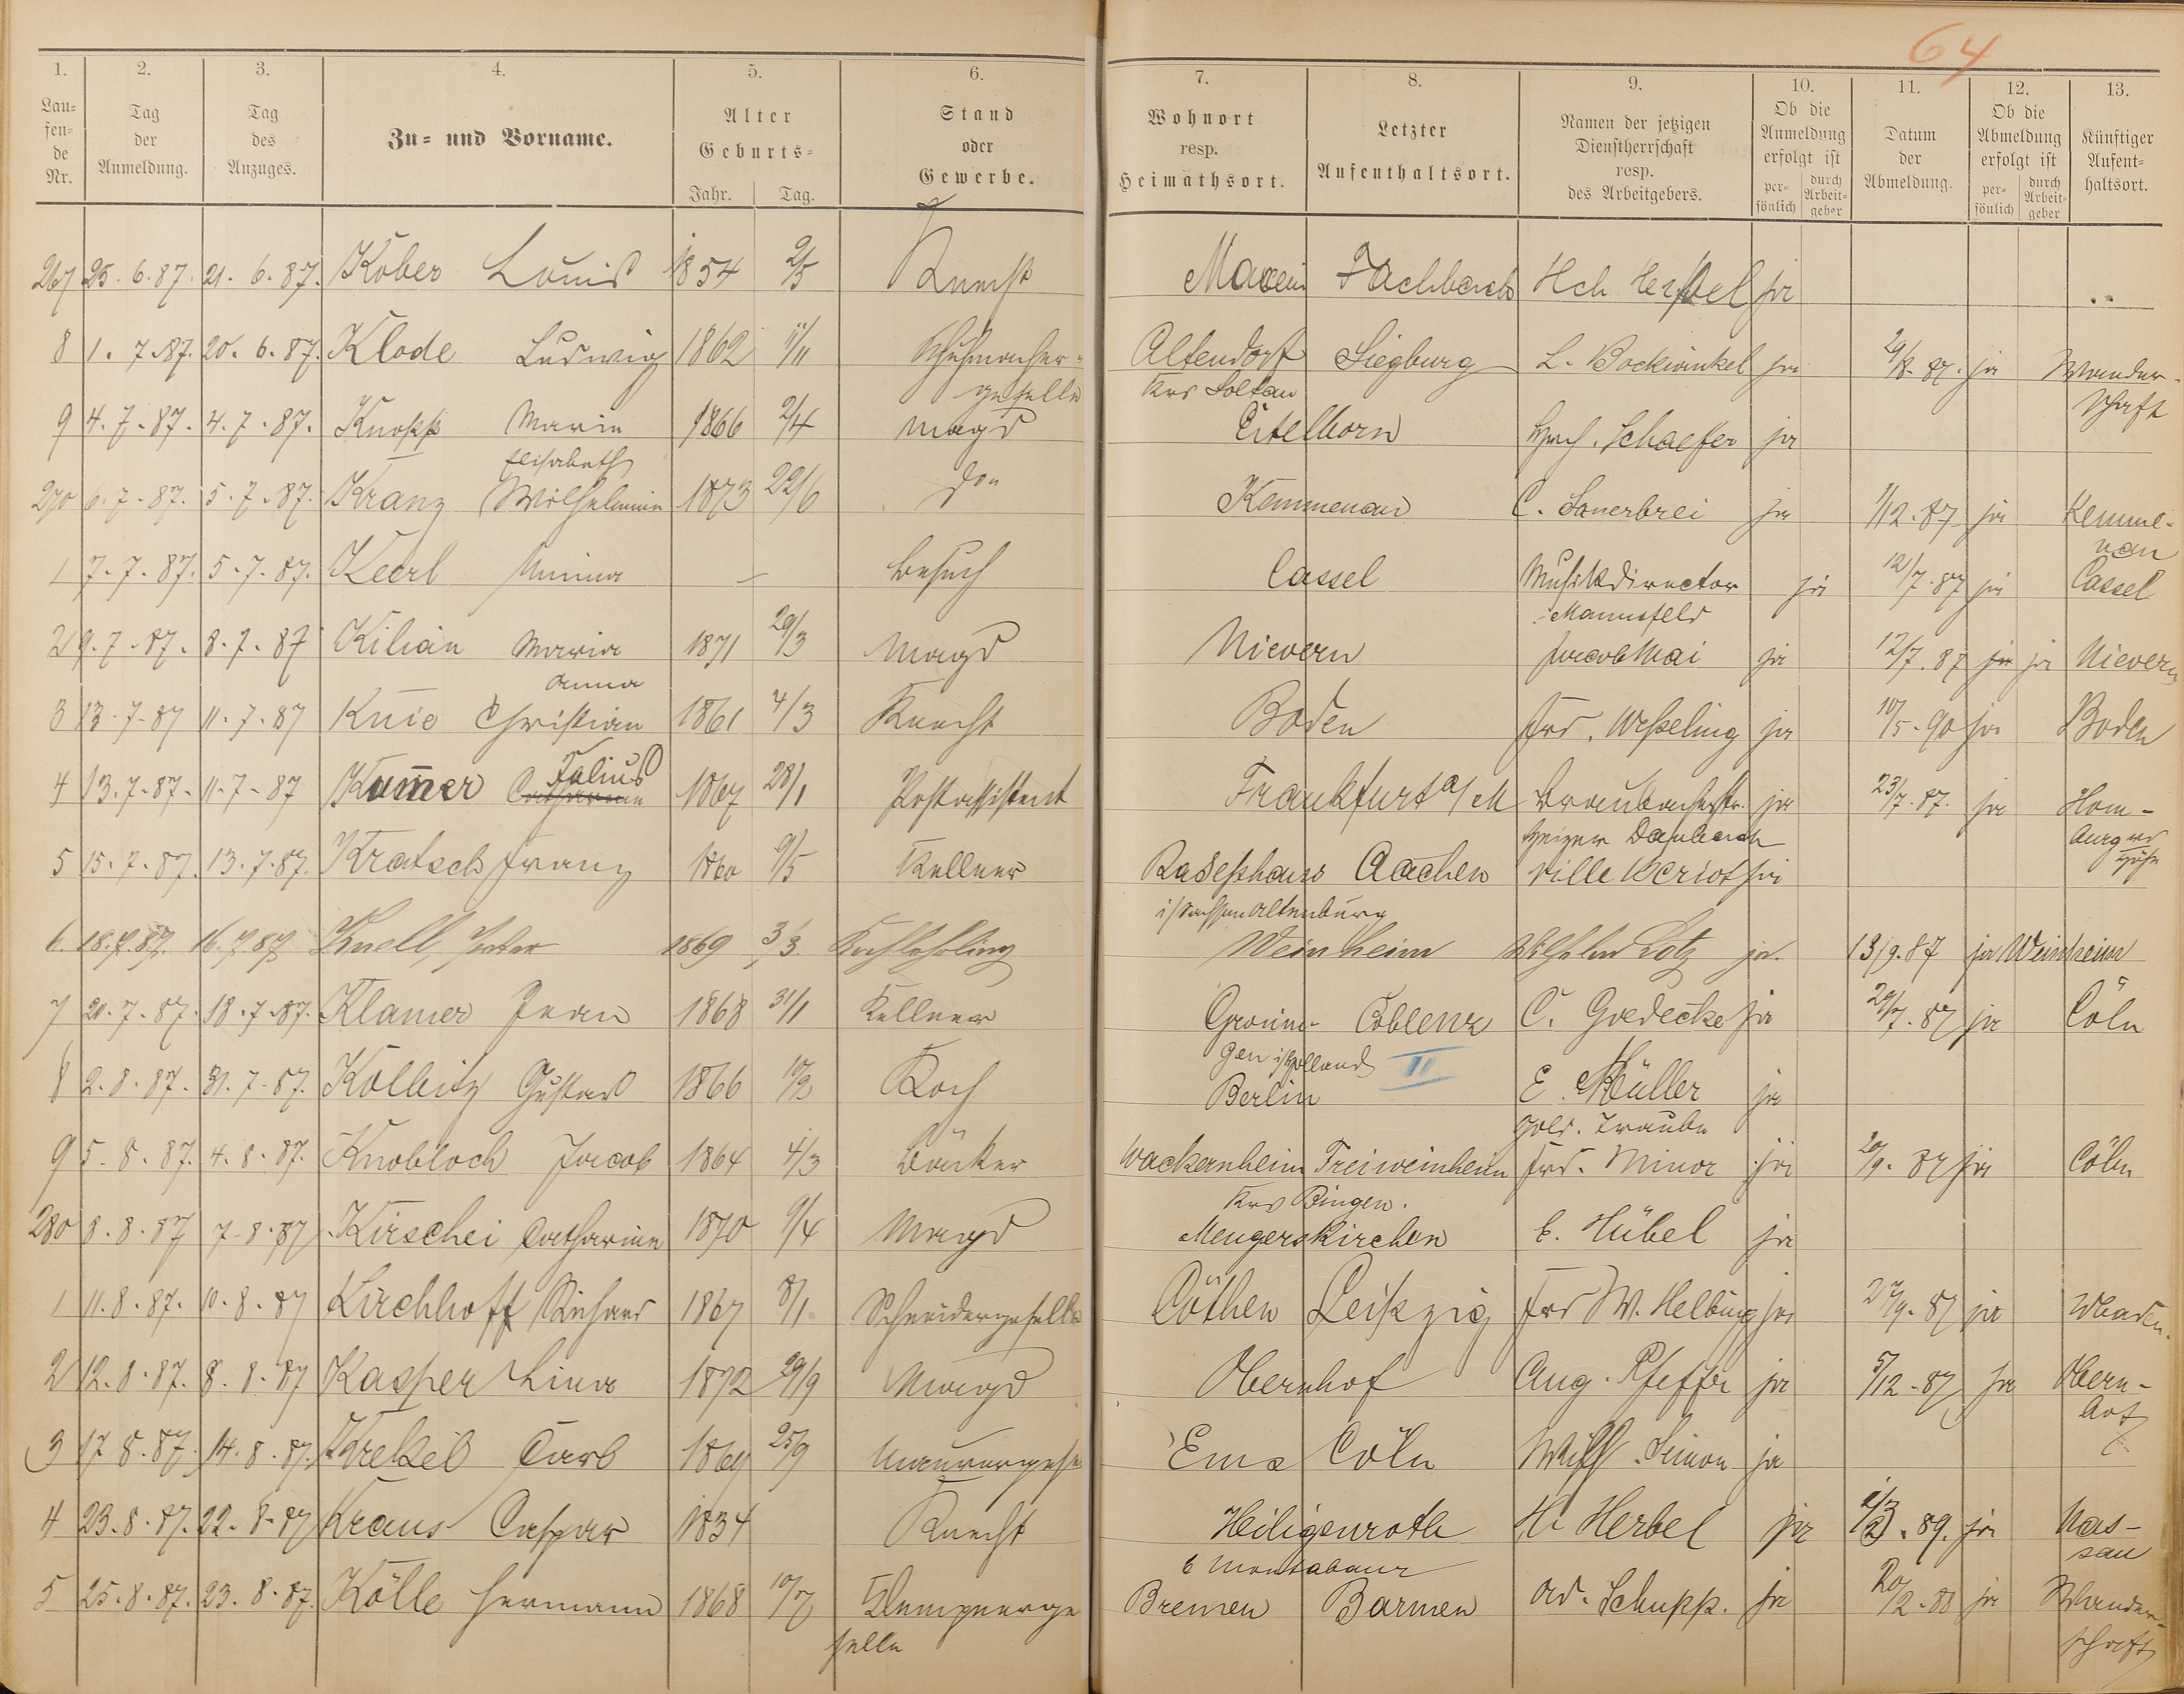 64
1. 2. 3. 4. 5. 6. 7. 8. 9. 10. 11. 12. 13.
Lau-
fen-
de
Nr.
Tag
der
Anmeldung.
Tag
des
Anzuges.
Zu- und Vorname.
Alter
Geburts-
Jahr. Tag.
Stand
oder
Gewerbe.
Wohnort
resp.
Heimathsort.
Letzter
Aufenthaltsort.
Namen der jetzigen
Dienstherrschaft
resp.
des Arbeitgebers.
Ob die
Anmeldung
erfolgt ist
per-
sönlich
durch
Arbeit-
geber
Datum
der
Abmeldung.
Ob die
Abmeldung
erfolgt ist
per-
sönlich
durch
Arbeit-
geber
Künftiger
Aufent-
haltsort.
267 25. 6. 87. 21. 6. 87. Kober Louis 1854 2/5 Knecht Maxein Fachbach Hch Herbel ja
8 1. 7. 87. 20. 6. 87. Klode Ludwig 1862 11/11 Schuhmacher- Altendorf Siegburg L. Bockwinkel ja 29/8. 87. ja Wander-
geselle Krs Soltau schaft
9 4. 7. 87. 4. 7. 87. Knopp Maria 1866 2/4 Magd Eitelborn Hch. Schaefer ja
Elisabeth
270 6. 7. 87. 5. 7. 87. Kranz Wilhelmine 1873 22/6 do Kemmenau C. Sauerbrei ja 1/12. 87 ja Kemme-
nau
1 7. 7. 87. 5. 7. 87. Keerl Minna — Besuch Cassel Musikdirector ja 12/7. 87 ja Cassel
Mannsfeld
2 9. 7. 87. 8. 7. 87 Kilian Maria 1871 29/3 Magd Nievern Jacob Mai ja 12/7. 87 ja ja Nievern
Anna
3 13. 7. 87 11. 7. 87 Knie Christian 1861 4/3 Knecht Boden Frd. Weseling ja 10/5. 90 ja Boden
Julius
4 13. 7. 87. 11. 7. 87 Kummer Catharine 1867 28/1 Postassistent Frankfurt a/M ja 23/7. 87. ja Hom-
burg vd
Höhe
5 15. 7. 87. 13. 7. 87. Kratsch Franz 1860 9/5 Kellner Aachen Ville Beriot ja
i/Sachsen Altenburg
6. 18. 7. 87. 16. 7. 87 Knell, Peter 1869 3/3. Kochlehrling Weinheim Wilhelm Lotz ja. 13/9. 87 ja Weinheim
7 20. 7. 87. 18. 7. 87. Klamer Jean 1868 31/1 Kellner Gronin- Coblenz C. Goedecke ja 29/7. 87 ja Cöln
gen i/Holland II
8 2. 8. 87. 31. 7. 87. Kolbitz Gustav 1866 Koch Berlin E. Müller ja
gold. Traube
9 5. 8. 87. 4. 8. 87. Knobloch Jacob 1864 4/3 Bäcker Wackernheim Freiweinheim Frd. Minor ja 20/9. 87 ja Cöln
Krs Bingen.
280 8. 8. 87 7. 8. 87 Kirschei Catharine 1870 9/4 Magd Mengerskirchen C. Hübel ja
1 11. 8. 87. 10. 8. 87 Kirchhoff Richard 1867 8/1 Schneidergeselle Cöthen Leipzig Frd W. Helbing ja 27/9. 87 ja
2 12. 8. 87. 8. 8. 87 Kasper Lina 1872 29/9 Magd Obernhof Aug. Pfeffer ja 5/12. 87 ja Obern-
hof
3 17 8. 87. 14. 8. 87. Krekel Carl 1869 25/9 Maurergeselle Ems Cöln Wilh. Simon ja
4 23. 8. 87. 22. 8. 87 Kraus Caspar 1834 Knecht Heiligenroth H. Herbel ja 89. ja Nas-
b Montabaur sau
5 25. 8. 87. 23. 8. 87. Kölle Hermann 1868 10/7 Klempnerge Bremen Barmen Ad. Schupp. ja 20/2. 88 ja Wander-
selle schaft